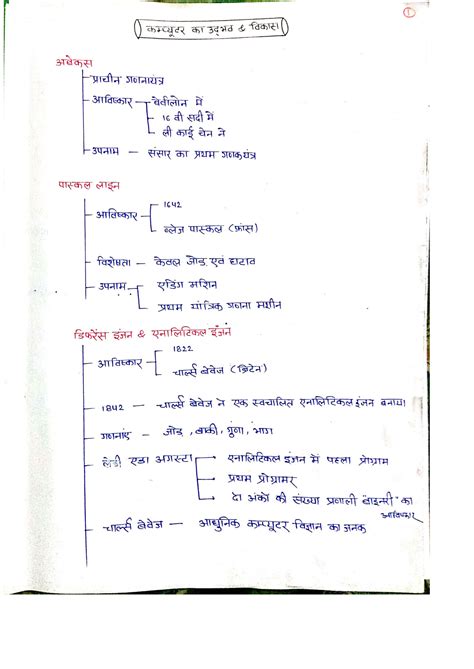 1
कम्प्यूटर का उद्भव & विकास
अबेकस
प्राचीन गणनायंत्र
आविष्कार — बेवीलोन में
16 वी सदी में
ली काई चेन ने
उपनाम — संसार का प्रथम गणकयंत्र
पास्कल लाइन
1642
आविष्कार
ब्लेज पास्कल (फ्रांस)
विशेषता — केवल जोड़ एवं घटाव
उपनाम — एडिंग मशिन
प्रथम यांत्रिक गणना मशीन
डिफरेंस इंजन & एनालिटिकल इंजन
1822
आविष्कार
चार्ल्स बेवेज (ब्रिटेन)
1842 — चार्ल्स बेवेज ने एक स्वचालित एनालिटिकल इंजन बनाया।
गणनाएं — जोड़, बाकी, गुंना, भाग
लेडी एडा अगस्टा — एनालिटिकल इंजन में पहला प्रोग्राम
प्रथम प्रोग्रामर
दो अंको की संख्या प्रणाली बाइनरी का
आविष्कार
चार्ल्स बेवेज — आधुनिक कम्प्यूटर विज्ञान का जनक